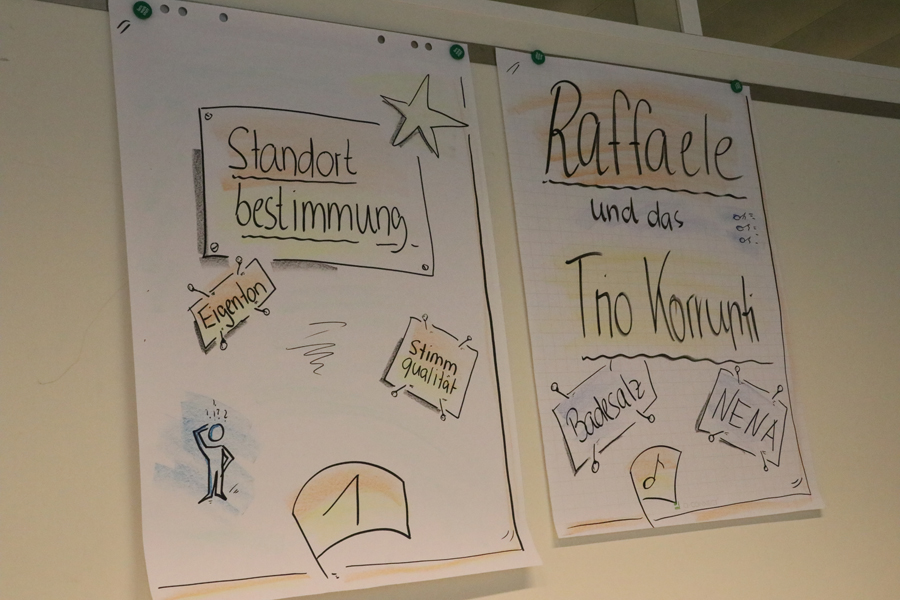 Standort
bestimmung
Eigenton
Stimm
qualität
1
Raffaele
und das
Trio Korrupti
Badesalz
NENA